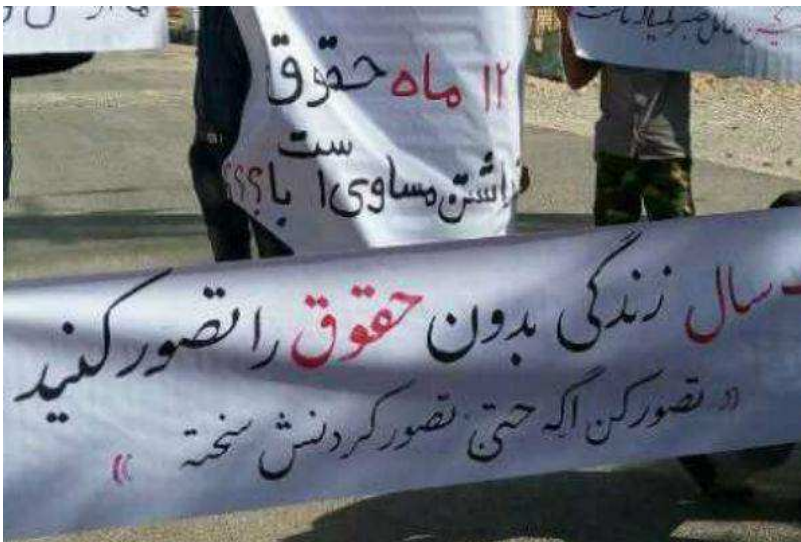 ۱۲ ماه حقوق
نداشتن مساوی است با؟؟؟
سال زندگی بدون حقوق را تصور کنید
« تصور کن اگه حتی تصور کردنش سخته »